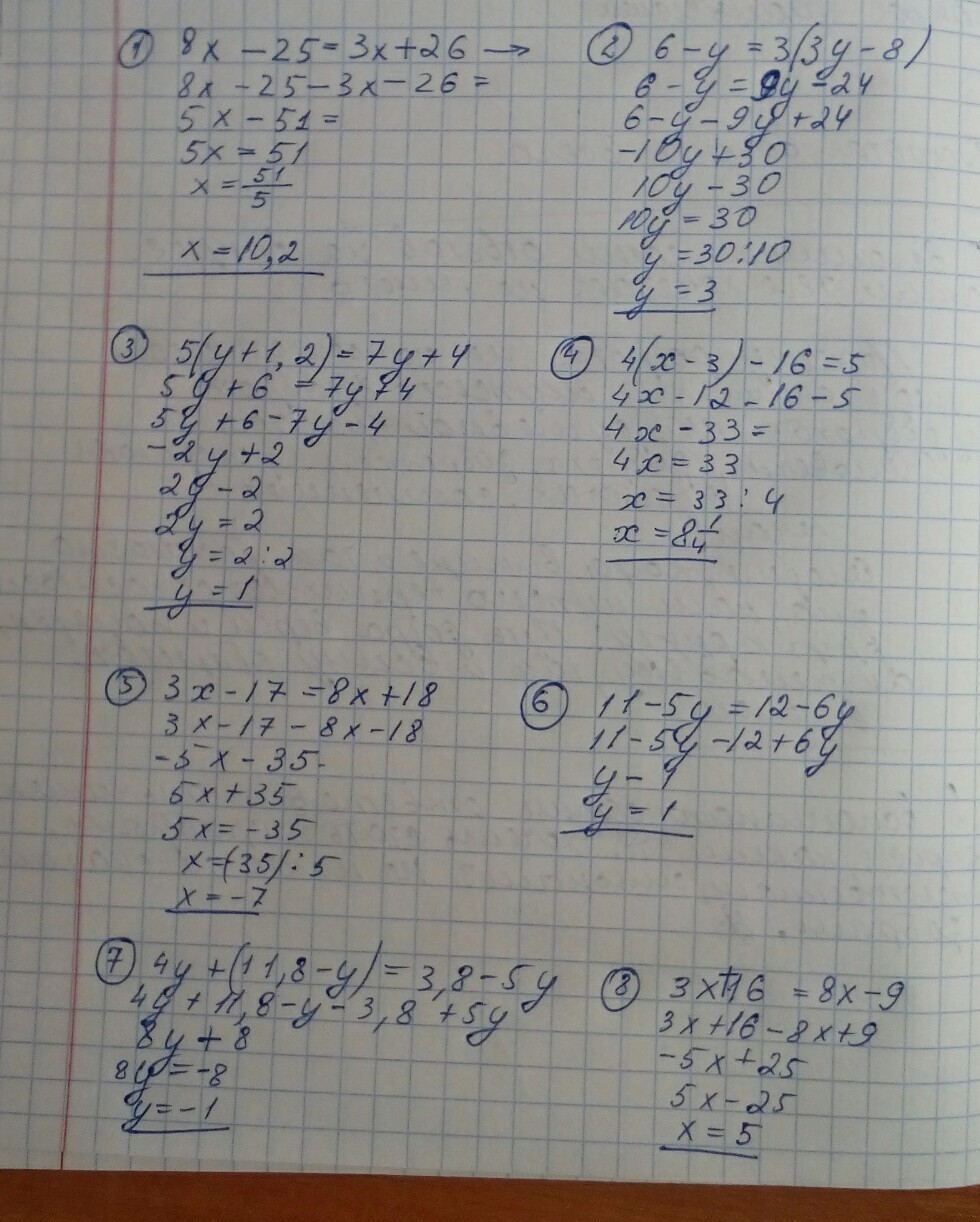 ① 8x - 25 = 3x + 26 →
8x - 25 - 3x - 26 =
5x - 51 =
5x = 51
x = 51/5
x = 10,2
② 6 - y = 3(3y - 8)
6 - y = 9y - 24
6 - y - 9y + 24
-10y + 30
10y - 30
10y = 30
y = 30 : 10
y = 3
③ 5(y + 1,2) = 7y + 4
5y + 6 = 7y + 4
5y + 6 - 7y - 4
-2y + 2
2y - 2
2y = 2
y = 2 : 2
y = 1
④ 4(x - 3) - 16 = 5
4x - 12 - 16 - 5
4x - 33 =
4x = 33
x = 33 : 4
x = 8 1/4
⑤ 3x - 17 = 8x + 18
3x - 17 - 8x - 18
-5x - 35 -
5x + 35
5x = -35
x = (35) : 5
x = -7
⑥ 11 - 5y = 12 - 6y
11 - 5y - 12 + 6y
y - 1
y = 1
⑦ 4y + (11,8 - y) = 3,8 - 5y
4y + 11,8 - y - 3,8 + 5y
8y + 8
8y = -8
y = -1
⑧ 3x + 16 = 8x - 9
3x + 16 - 8x + 9
-5x + 25
5x - 25
x = 5